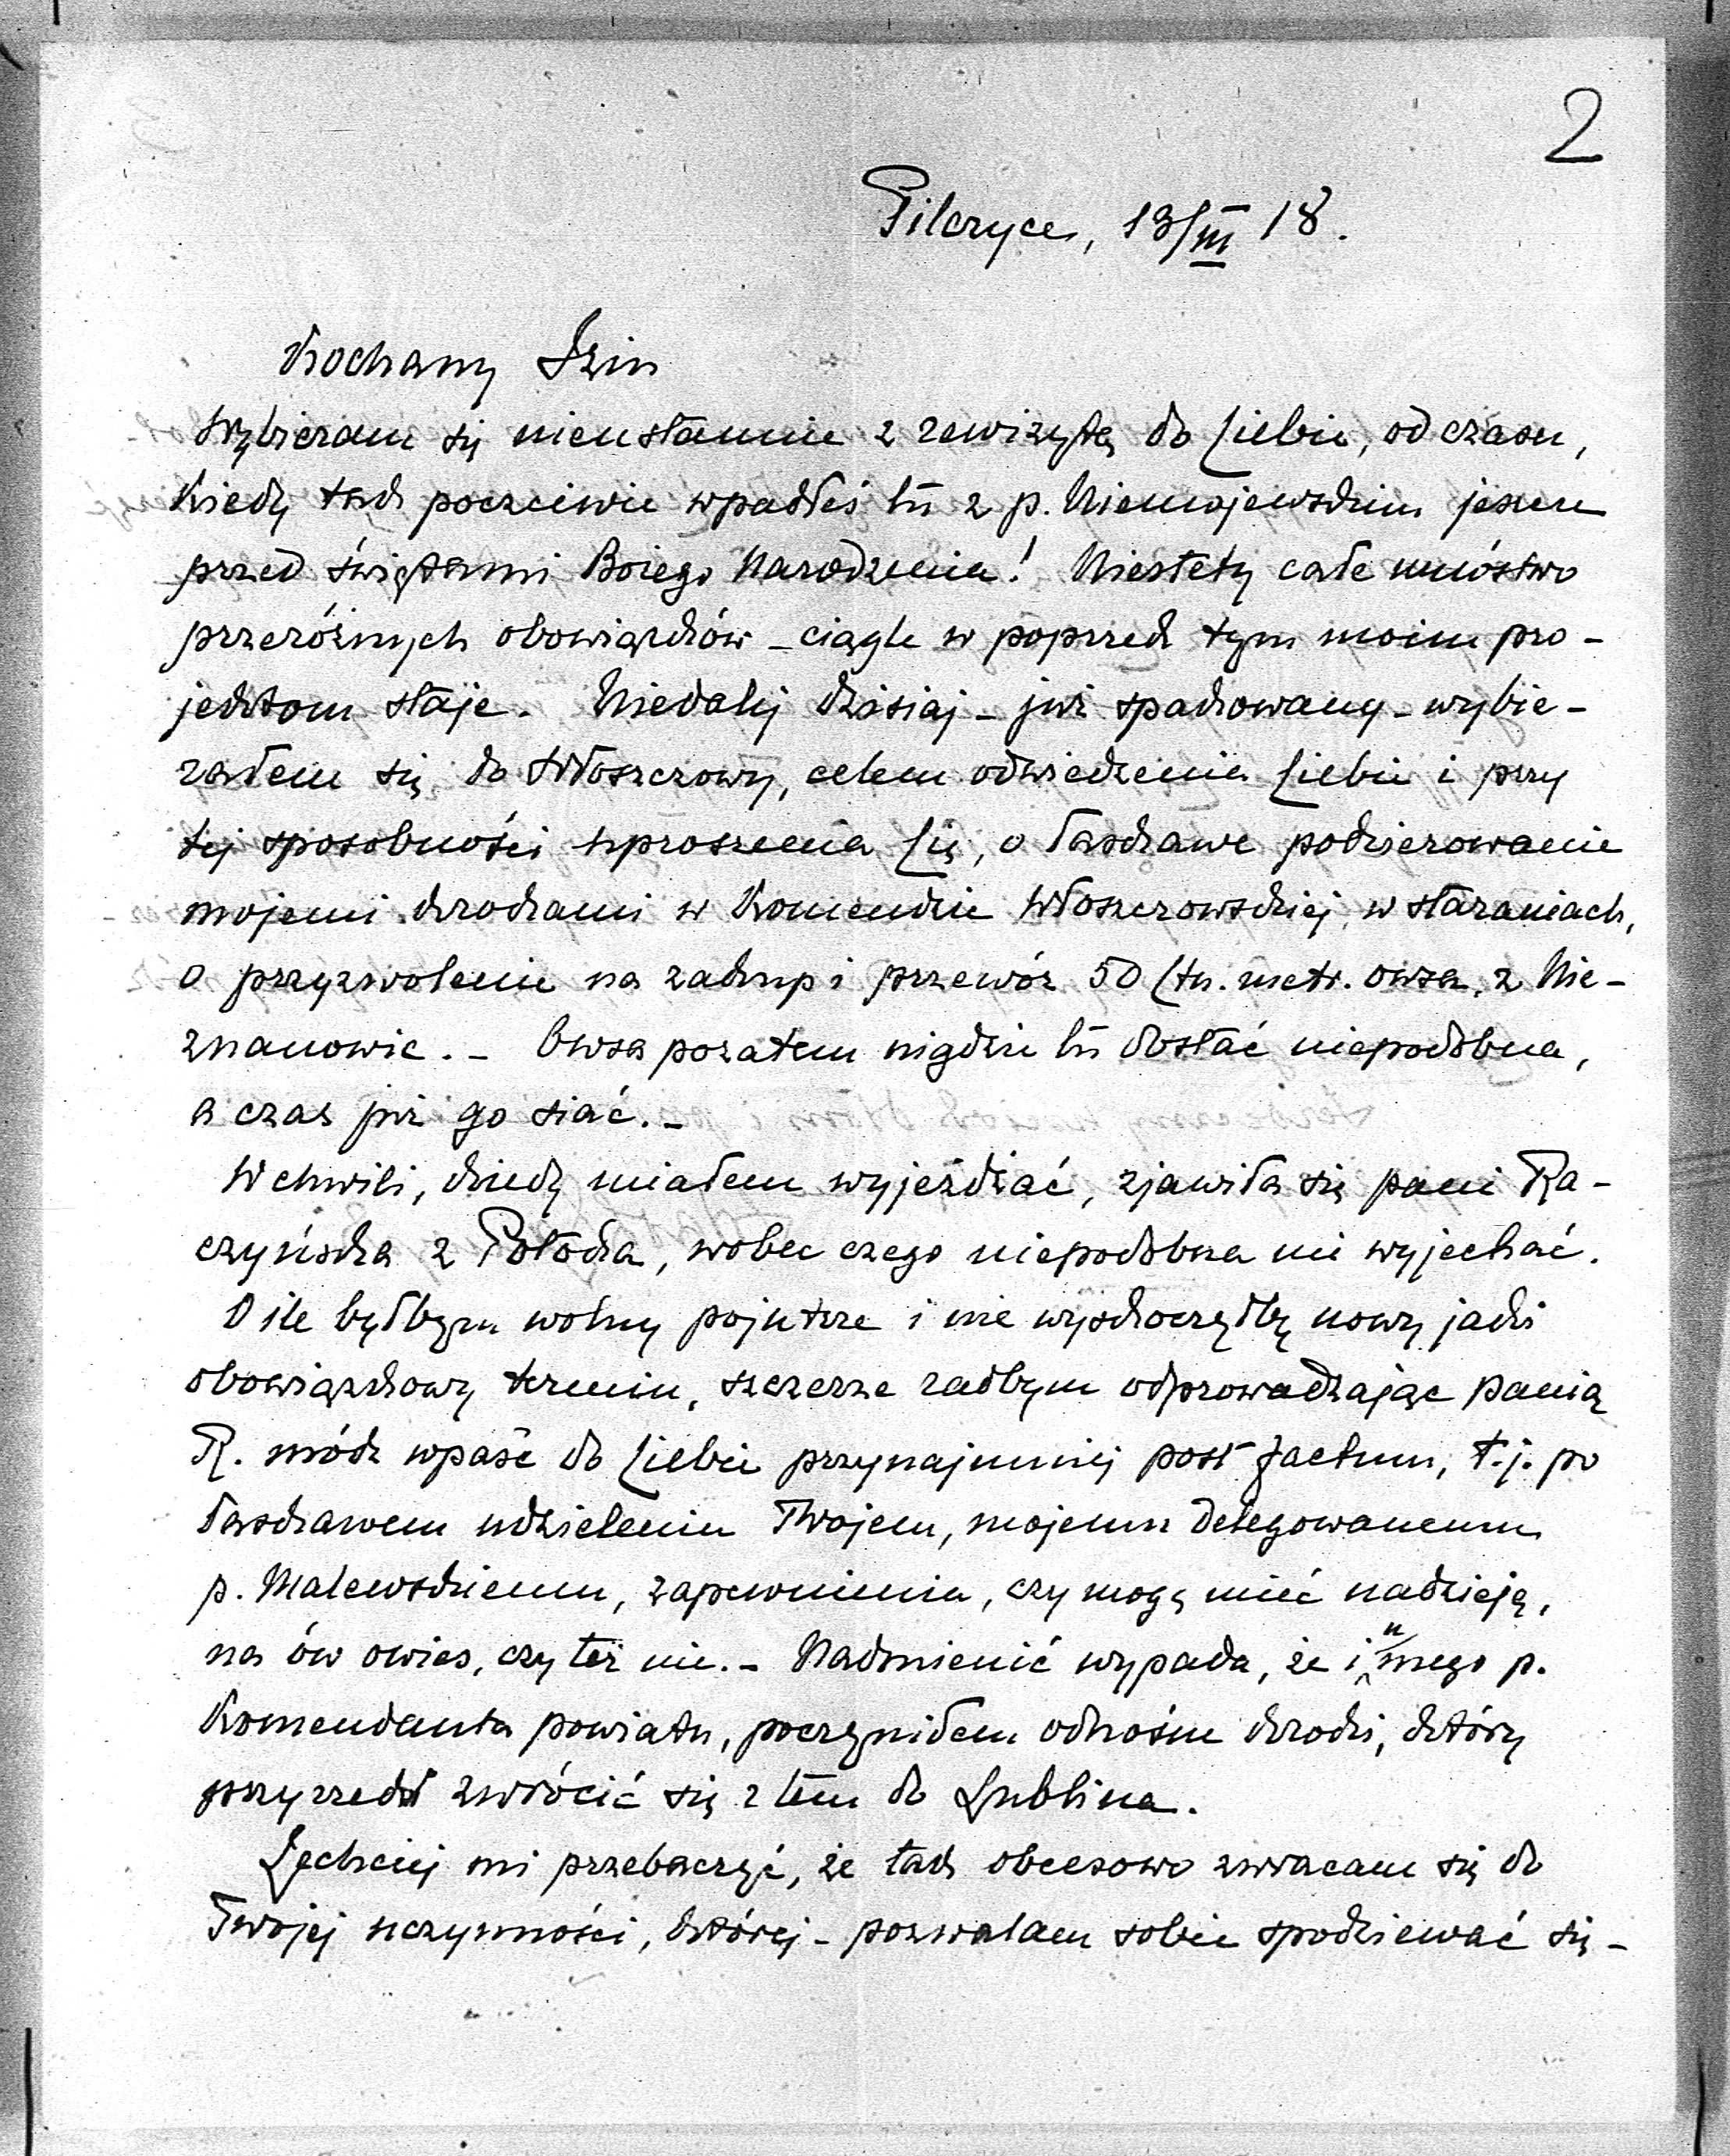 2
Pilczyce, 13/III 18.
Kochany Dzin
Wybieram się nieustannie z rewizytą do Ciebie, od czasu,
kiedy tak poczciwie wpadłeś tu z p. Niemojewskim jeszcze
przed świętami Bożego Narodzenia! Niestety całe mnóstwo
przeróżnych obowiązków – ciągle w poprzek tym moim pro-
jektom staje. Niedalej dzisiaj – już spakowany – wybie-
rałem się do Włoszczowy, celem odwiedzenia Ciebie i przy
tej sposobności uproszenia Cię, o łaskawe pokierowanie
mojemi krokami w Komendzie Włoszczowskiej, w staraniach,
o przyzwolenie na zakup i przewóz 50 Ctn. metr. owsa, z Nie-
znanowic. – Owsa pozatem nigdzie tu dostać niepodobna,
a czas już go siać. –
W chwili, kiedy miałem wyjeżdżać, zjawiła się pani Ra-
czyńska z Potoka, wobec czego niepodobna mi wyjechać.
O ile byłbym wolny pojutrze i nie wyskoczyłby nowy jakiś
obowiązkowy termin, szczerze radbym odprowadzając panią
R. módz wpaść do Ciebie przynajmniej post factum, t.j. po
łaskawem udzieleniu Twojem, mojemu delegowanemu
p. Malewskiemu, zapewnienia, czy mogę mieć nadzieję,
na ów owies, czy też nie. – Nadmienić wypada, że i u mego p.
Komendanta powiatu, poczyniłem odnośne kroki, który
przyrzekł zwrócić się z tem do Lublina.
Zechciej mi przebaczyć, że tak obcesowo zwracam się do
Twojej uczynności, której – pozwalam sobie spodziewać się –